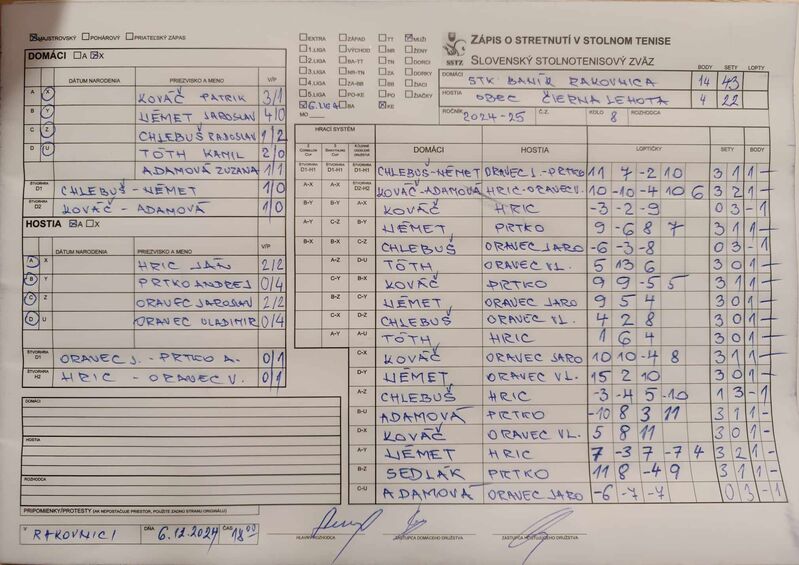 MAJSTROVSKÝ POHÁROVÝ PRIATEĽSKÝ ZÁPAS
DOMÁCI A X
DÁTUM NARODENIA PRIEZVISKO A MENO V/P
A X KOVÁČ PATRIK 3/1
B Y NÉMET JAROSLAV 4/0
C Z CHLEBUŠ RADOSLAV 1/2
D U TÓTH KAMIL 2/0
ADAMOVÁ ZUZANA 1/1
ŠTVORHRA D1 CHLEBUŠ - NÉMET 1/0
ŠTVORHRA D2 KOVÁČ - ADAMOVÁ 1/0
HOSTIA A X
DÁTUM NARODENIA PRIEZVISKO A MENO V/P
A X HRIC JÁN 2/2
B Y PRTKO ANDREJ 0/4
C Z ORAVEC JAROSLAV 2/2
D U ORAVEC VLADIMIR 0/4
ŠTVORHRA ORAVEC J. - PRTKO A. 0/1
ŠTVORHRA H2 HRIC - ORAVEC V. 0/1
DOMÁCI
HOSTIA
ROZHODCA
PRIPOMIENKY/PROTESTY (AK NEPOSTAČUJE PRIESTOR, POUŽITE ZADNÚ STRANU ORIGINÁLU)
V RAKOVNICI DŇA 6.12.2024 ČAS 18:00
EXTRA ZÁPAD TT MUŽI
1.LIGA VÝCHOD NR ŽENY
2.LIGA BA-TT TN DORCI
3.LIGA NR-TN ZA DORKY
4.LIGA ZA-BB BB ŽIACI
5.LIGA PO-KE PO ŽIAČKY
6.LIGA BA KE
MO
SSTZ
ZÁPIS O STRETNUTÍ V STOLNOM TENISE
SLOVENSKÝ STOLNOTENISOVÝ ZVÄZ
BODY SETY LOPTY
DOMÁCI STK BANÍK RAKOVNICA 14 43
HOSTIA OBEC ČIERNA LEHOTA 4 22
ROČNÍK 2024-25 Č.Z. KOLO 8 ROZHODCA
HRACÍ SYSTÉM
DOMÁCI HOSTIA LOPTIČKY SETY BODY
D1-H1 D1-H1 D1-H1 CHLEBUŠ-NÉMET ORAVEC J.-PRTKO 11 7 -2 10 3 1 1 -
A-X A-X D2-H2 KOVÁČ-ADAMOVÁ HRIC-ORAVEC V. 10 -10 -4 10 6 3 2 1 -
B-Y B-Y A-X KOVÁČ HRIC -3 -2 -9 0 3 - 1
A-Y C-Z B-Y NÉMET PRTKO 9 -6 8 7 3 1 1 -
B-X B-X C-Z CHLEBUŠ ORAVEC JARO -6 -3 -8 0 3 - 1
A-Z D-U TÓTH ORAVEC VL. 5 13 6 3 0 1 -
C-Y B-X KOVÁČ PRTKO 9 9 -5 5 3 1 1 -
B-Z C-Y NÉMET ORAVEC JARO 9 5 4 3 0 1 -
C-X CHLEBUŠ ORAVEC VL. 4 2 8 3 0 1 -
A-Y A-U TÓTH HRIC 1 6 4 3 0 1 -
C-X KOVÁČ ORAVEC JARO 10 10 -4 8 3 1 1 -
D-Y NÉMET ORAVEC VL. 15 2 10 3 0 1 -
A-Z CHLEBUŠ HRIC -3 -4 5 -10 1 3 - 1
B-U ADAMOVÁ PRTKO -10 8 3 11 3 1 1 -
D-X KOVÁČ ORAVEC VL. 5 8 11 3 0 1 -
A-Y NÉMET HRIC 7 -3 7 -7 4 3 2 1 -
B-Z SEDLÁK PRTKO 11 8 -4 9 3 1 1 -
C-U ADAMOVÁ ORAVEC JARO -6 -7 -7 0 3 - 1
HLAVNÝ ROZHODCA ZÁSTUPCA DOMÁCEHO DRUŽSTVA ZÁSTUPCA HOSTUJÚCEHO DRUŽSTVA